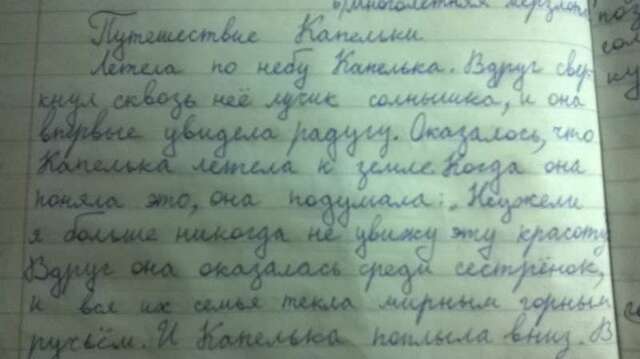 б) многолетняя мерзлота
Путешествие Капельки
Летела по небу Капелька. Вдруг све-
кнул сквозь неё лучик солнышка, и она
впервые увидела радугу. Оказалось, что
Капелька летела к земле. Когда она
поняла это, она подумала: „Неужели
я больше никогда не увижу эту красоту
Вдруг она оказалась среди сестрёнок,
и вся их семья текла мирным горным
ручьём. И Капелька поплыла вниз. В